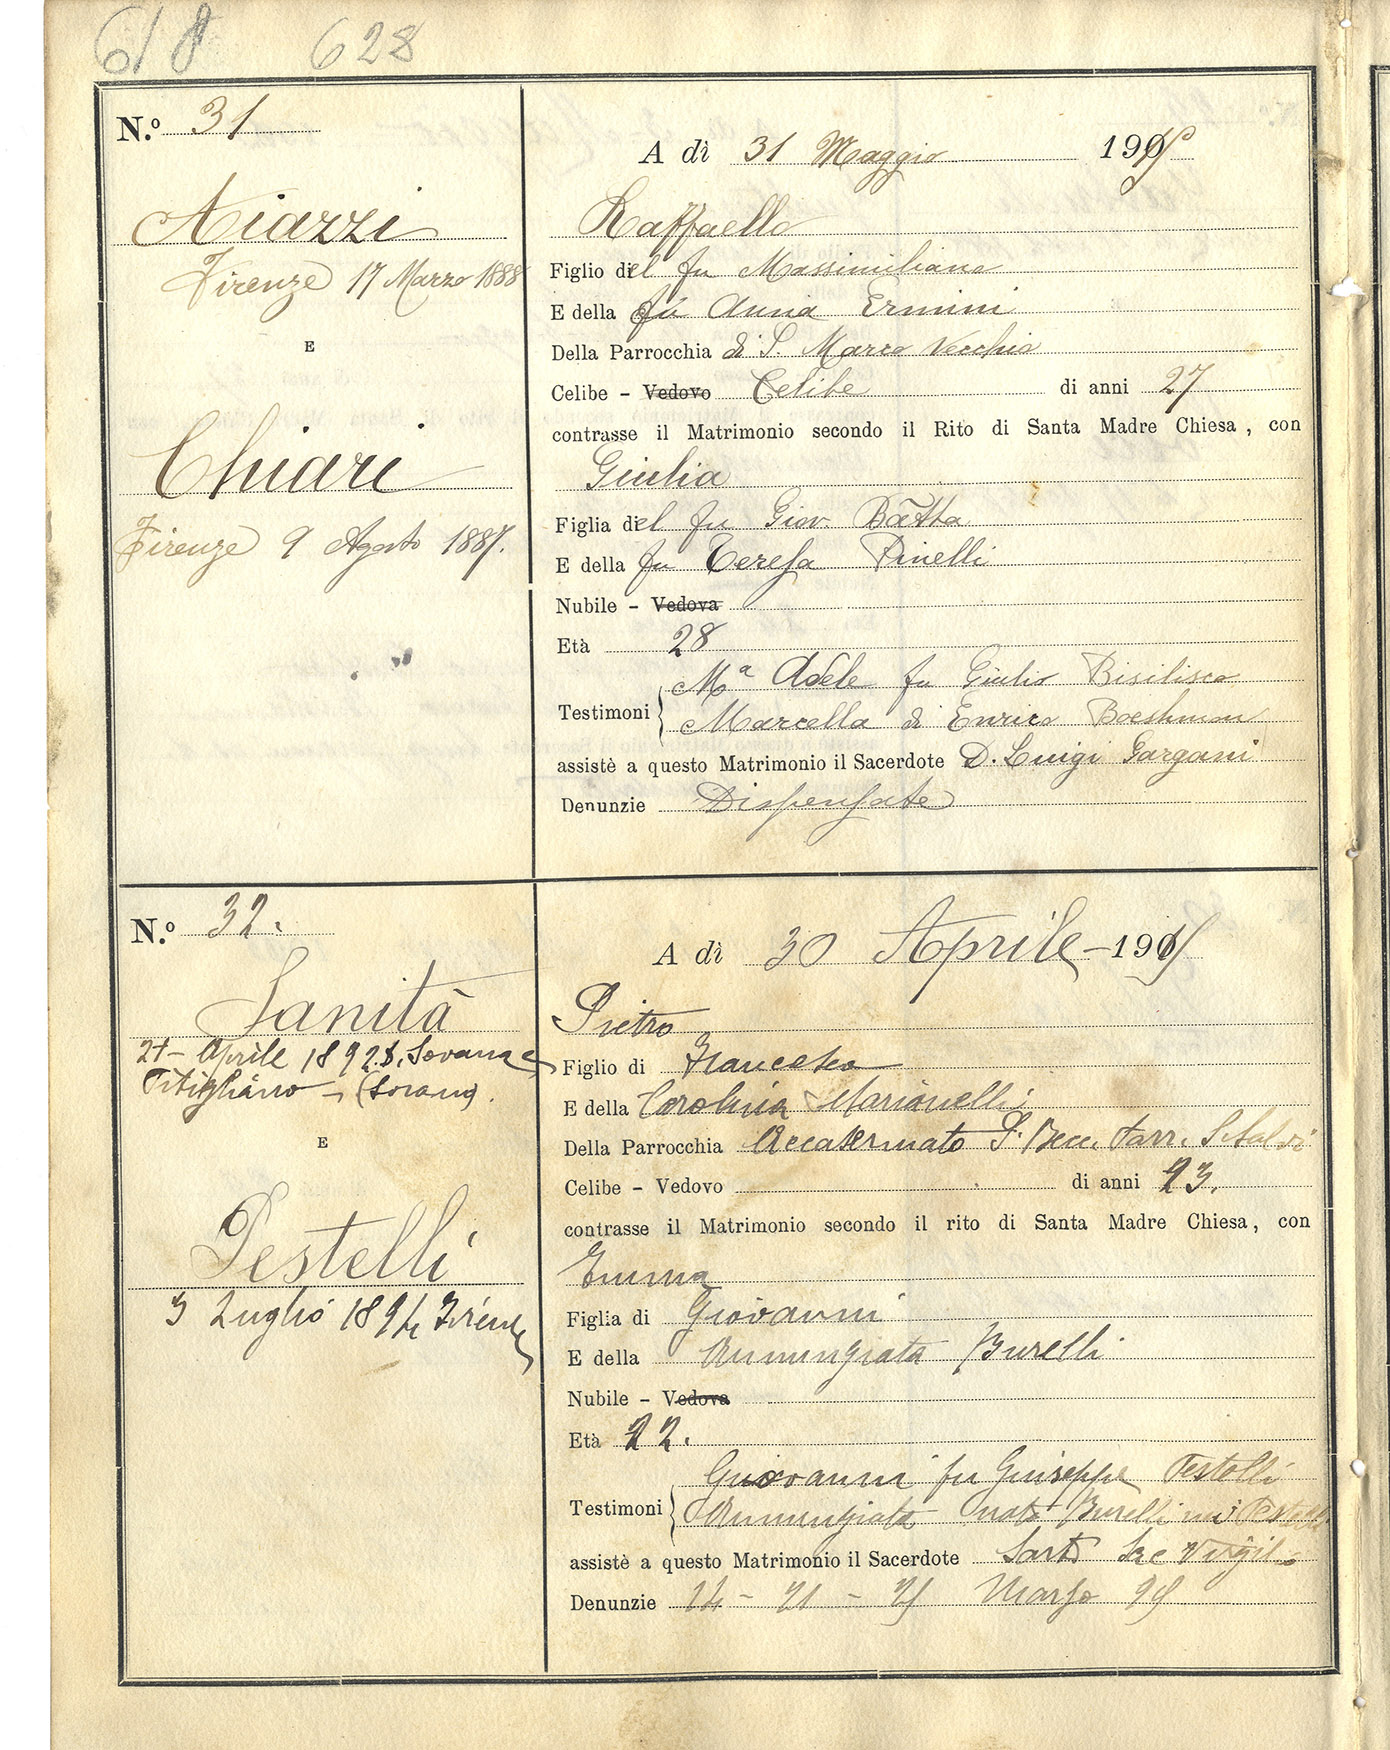 618 628
N.º 31
Aiazzi
Firenze 17 Marzo 1888
E
Chiari
Firenze 9 Agosto 1887.
A dì 31 Maggio 1915
Raffaello
Figlio del fu Massimiliano
E della fu Anna Ermini
Della Parrocchia di S. Marco Vecchio
Celibe - Vedovo Celibe di anni 27
contrasse il Matrimonio secondo il Rito di Santa Madre Chiesa, con
Giulia
Figlia del fu Giov. Batta
E della fu Teresa Pinelli
Nubile - Vedova
Età 28
Testimoni
Mª Adele fu Giulio Bisilisco
Marcella di Enrico
assistè a questo Matrimonio il Sacerdote D. Luigi Gargani
Denunzie Dispensate
N.º 32.
Sanità
21 - Aprile 1892. S. Sovana
(Sorano).
E
Pestelli
3 Luglio 1894 Firenze
A dì 30 Aprile - 1915
Pietro
Figlio di Francesco
E della Carolina Marionelli
Della Parrocchia Accasermato S.
Celibe - Vedovo di anni 23.
contrasse il Matrimonio secondo il rito di Santa Madre Chiesa, con
Emma
Figlia di Giovanni
E della Annunziata Burelli
Nubile - Vedova
Età 22.
Testimoni
Giovanni fu Giuseppe Pestelli
Annunziata nata Burelli nei Pestelli
assistè a questo Matrimonio il Sacerdote Virgilio
Denunzie 14 - 21 - 25 Marzo 915